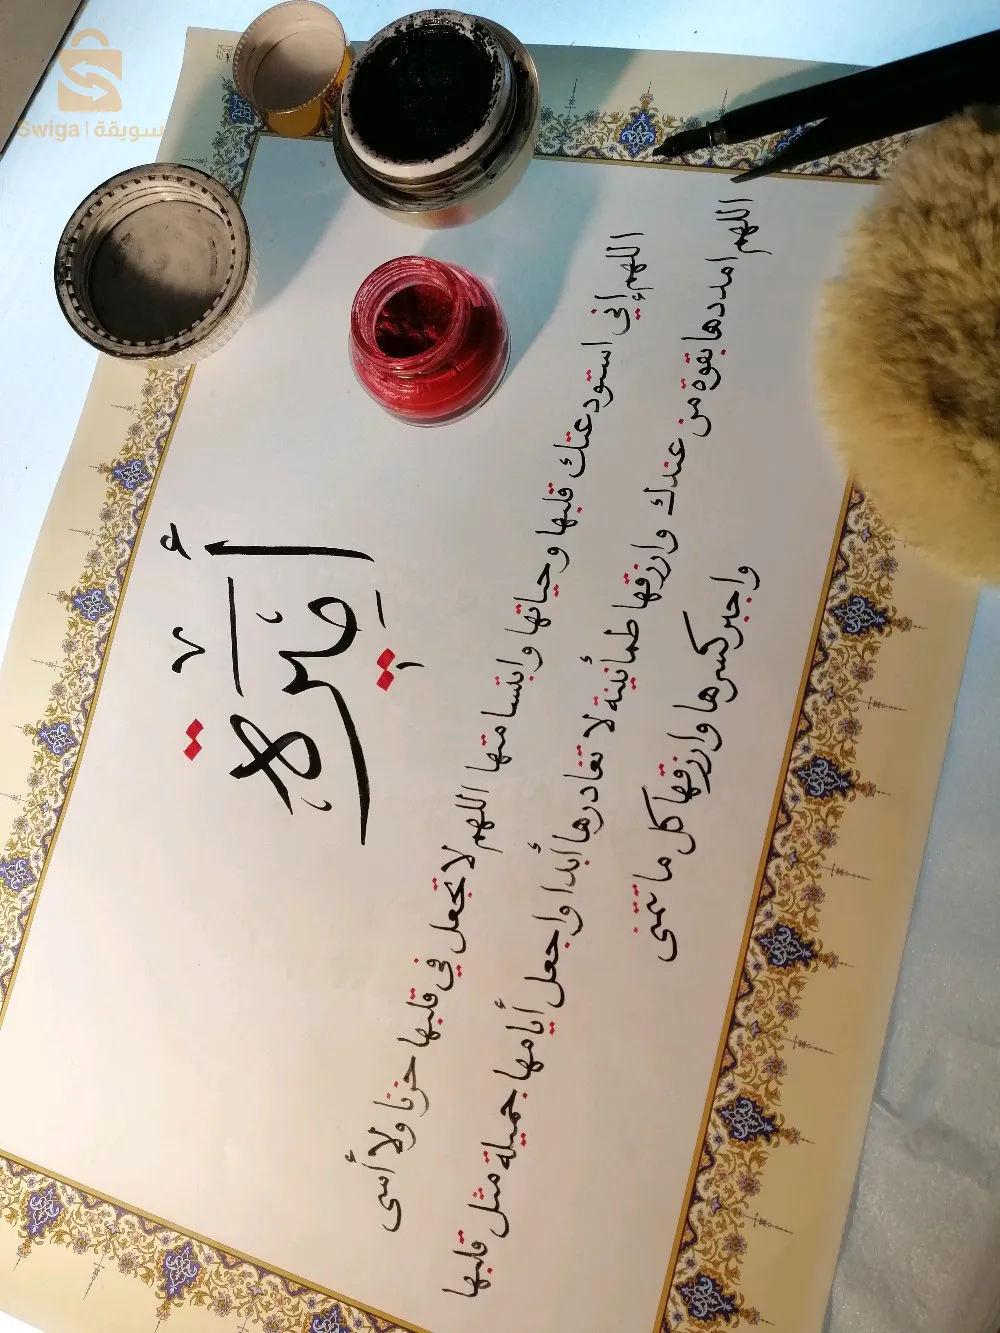 Swiga | سويقة
أميرة
اللهم إني استودعتك قلبها وحياتها وابتسامتها اللهم لا تجعل في قلبها حزنا ولا أسى
اللهم امددها بقوة من عندك وارزقها طمأنينة لا تغادرها أبدا واجعل أيامها جميلة مثل قلبها
واجبر كسرها وارزقها كل ما تتمنى